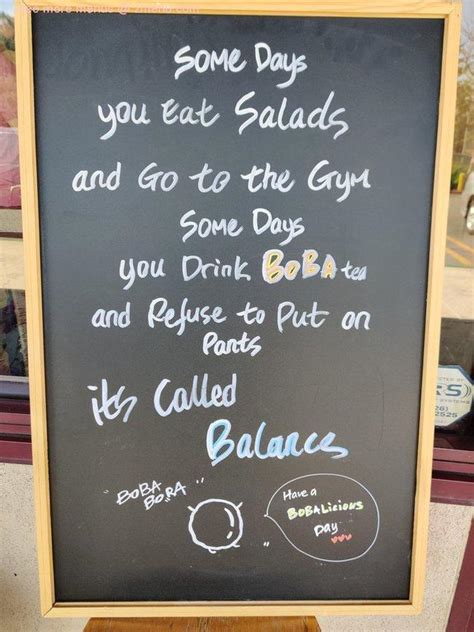 Some Days
you eat Salads
and Go to the Gym
Some Days
you Drink BOBA tea
and Refuse to Put on
Pants
its Called
Balance
"BOBA
BORA"
Have a
BOBALicious
Day